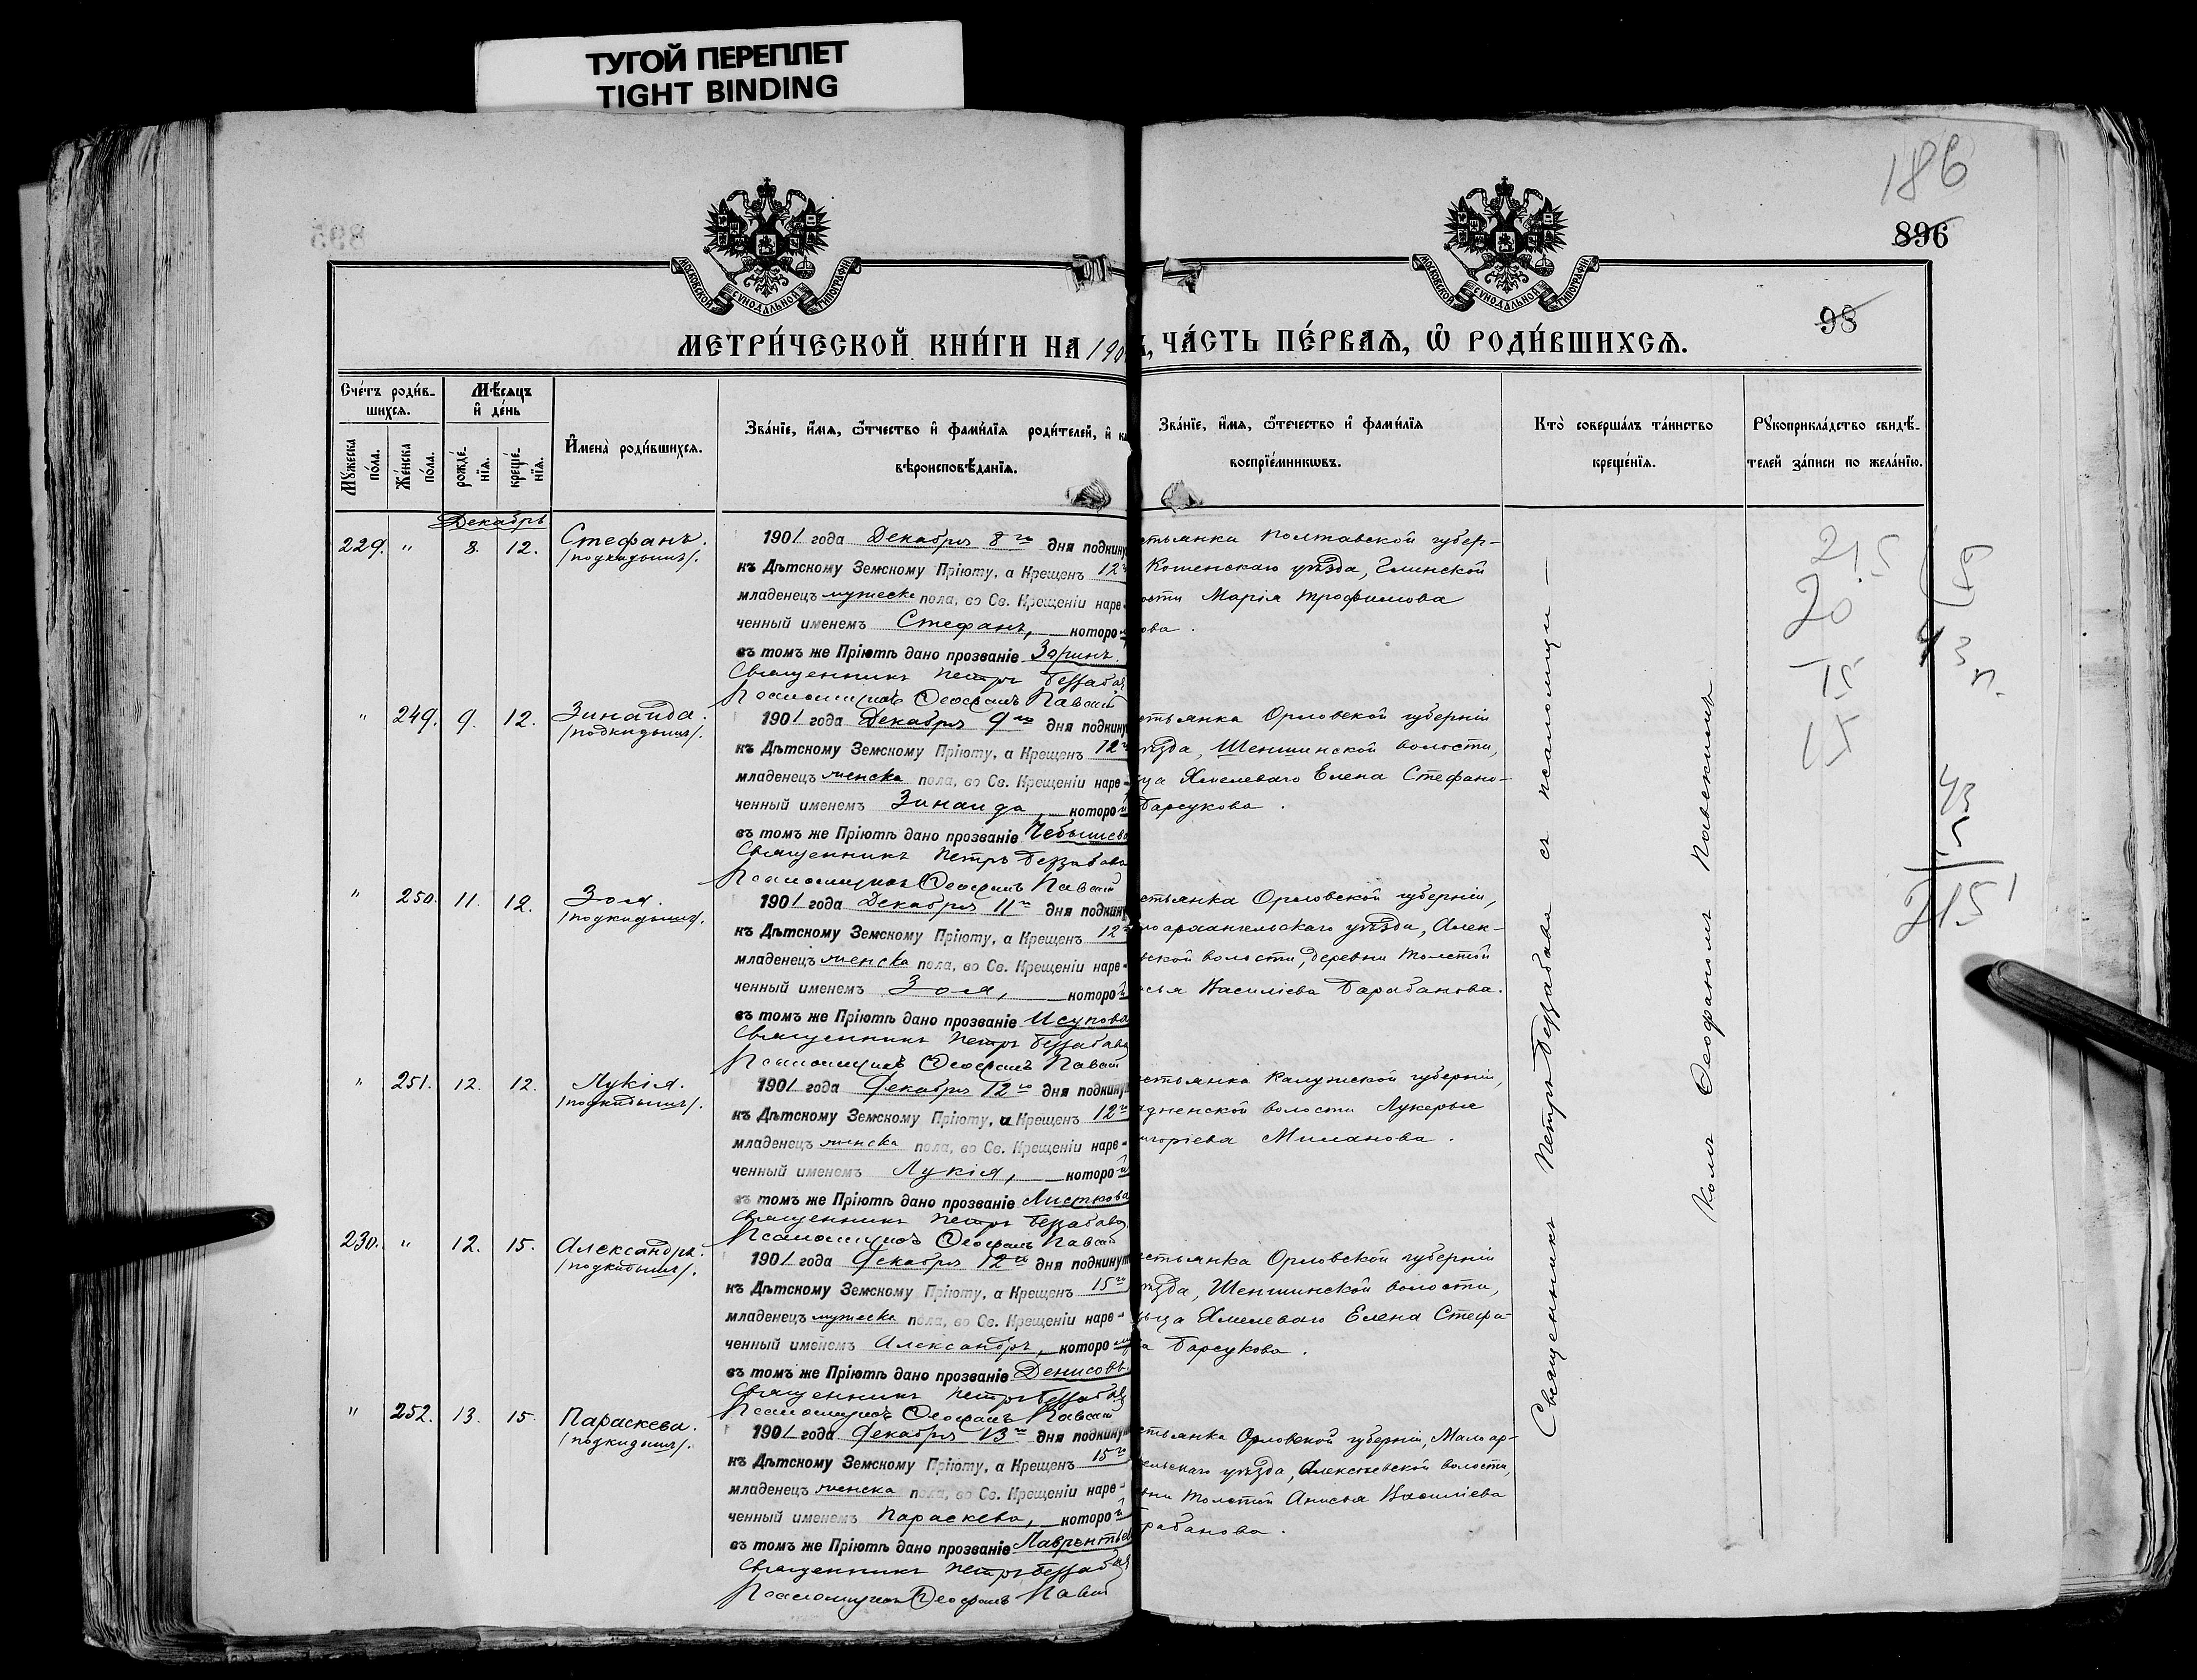 ТУГОЙ ПЕРЕПЛЕТ
TIGHT BINDING
186
895
896
98
МОСКОВСКОЙ СѴНОДАЛЬНОЙ ТИПОГРАФІИ
МОСКОВСКОЙ СѴНОДАЛЬНОЙ ТИПОГРАФІИ
МЕТРИ́ЧЕСКОЙ КНИ́ГИ НА 190
ЧА́СТЬ ПЕ́РВАѦ, Ѽ РОДИ́ВШИХСѦ.
Сче́тъ роди́в-
шихсѧ.
Мѣсяцъ
и҆ де́нь
Мꙋжеска по́ла.
Же́нска по́ла.
рожде́-нїѧ.
креще́-нїѧ.
И҆мена̀ роди́вшихсѧ.
Зва́нїе, и҆́мѧ, ѻ҆́тчество и҆ фами́лїѧ роди́телей, и҆ ка
вѣроисповѣ́данїѧ.
Зва́нїе, и҆́мѧ, ѻ҆́течество и҆ фами́лїѧ
воспрїе́мникѡвъ.
Кто̀ соверша́лъ та́инство
креще́нїѧ.
Рꙋкоприкла́дство свидѣ́-
телей за́писи по жела́нїю.
Декабрь
229. " 8. 12. Стефанъ.
/подкидышъ/.
1901 года Декабря 8го дня подкину
къ Дѣтскому Земскому Пріюту, а Крещенъ 12
младенецъ мужеска пола, во Св. Крещеніи наре-
ченный именемъ Стефанъ, которо
въ томъ же Пріютѣ дано прозваніе Заринъ.
Священникъ Петръ Беззабав
Псаломщикъ Ѳеофанъ Павс
стьянка Полтавской губер-
Коменскаго уѣзда, Глинской
ости Марія Трофимова
ова.
" 249. 9. 12. Зинаида.
/подкидышъ/.
1901 года Декабря 9го дня подкину
къ Дѣтскому Земскому Пріюту, а Крещенъ 12
младенецъ женска пола, во Св. Крещеніи наре-
ченный именемъ Зинаида, которой
въ томъ же Пріютѣ дано прозваніе Чебышева
Священникъ Петръ Беззабава
Псаломщикъ Ѳеофанъ Павс
стьянка Орловской губерніи
ѣзда, Шеншинской волости,
ца Хмелеваго Елена Стефано-
Барсукова.
" 250. 11. 12. Зоя.
/подкидышъ/.
1901 года Декабря 11го дня подкину
къ Дѣтскому Земскому Пріюту, а Крещенъ 12
младенецъ женска пола, во Св. Крещеніи наре-
ченный именемъ Зоя, которой
въ томъ же Пріютѣ дано прозваніе Исупова
Священникъ Петръ Беззабава
Псаломщикъ Ѳеофанъ Павс
стьянка Орловской губерніи,
лоархангельскаго уѣзда, Алек-
вской волости, деревни Толстой
сья Василіева Барабанова.
" 251. 12. 12. Лукія.
/подкидышъ/.
1901 года Декабря 12го дня подкину
къ Дѣтскому Земскому Пріюту, а Крещенъ 12го
младенецъ женска пола, во Св. Крещеніи наре-
ченный именемъ Лукія, которой
въ томъ же Пріютѣ дано прозваніе Листкова
Священникъ Петръ Беззабава
Псаломщикъ Ѳеофанъ Павс
стьянка Калужской губерніи,
дненской волости Лукерья
игоріева Миланова.
230. " 12. 15. Александръ.
/подкидышъ/.
1901 года Декабря 12го дня подкинут
къ Дѣтскому Земскому Пріюту, а Крещенъ 15го
младенецъ мужеска пола, во Св. Крещеніи наре-
ченный именемъ Александръ, которому
въ томъ же Пріютѣ дано прозваніе Денисовъ.
Священникъ Петръ Беззабав
Псаломщикъ Ѳеофанъ Павс
стьянка Орловской губерніи
ѣзда, Шеншинской волости,
ьца Хмелеваго Елена Стефа-
а Барсукова.
" 252. 13. 15. Параскева.
/подкидышъ/.
1901 года Декабря 13го дня подкину
къ Дѣтскому Земскому Пріюту, а Крещенъ 15го
младенецъ женска пола, во Св. Крещеніи наре-
ченный именемъ Параскева, которой
въ томъ же Пріютѣ дано прозваніе Лаврентьев
Священникъ Петръ Беззабав
Псаломщикъ Ѳеофанъ Павс
стьянка Орловской губерніи, Малоар-
ельскаго уѣзда, Алексѣевской волости,
вни Толстой Анисья Василіева
рабанова.
Священникъ Петръ Беззабава съ псаломщи-
комъ Ѳеофаномъ Павскимъ
215
20
15
15
43
215